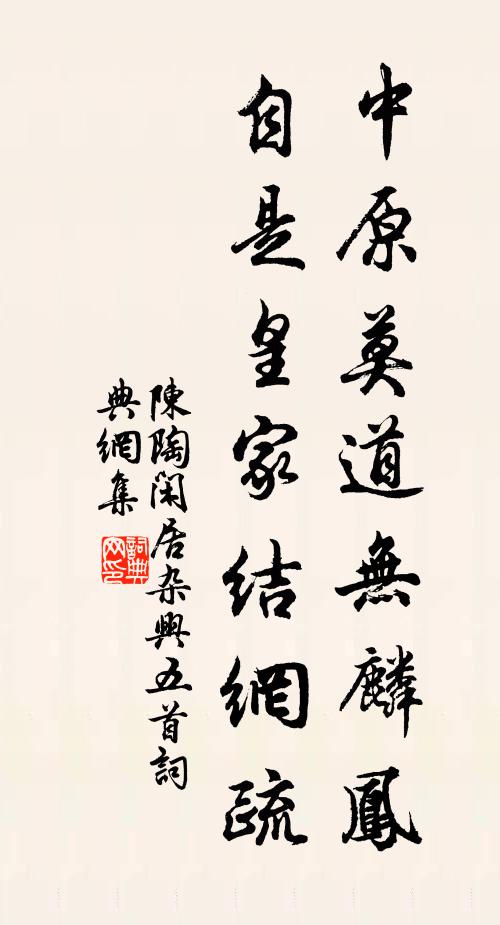 中原莫道無麟鳳
自是皇家結網疏
陳陶閑居杂興五首詞
典網集
詞典
网印